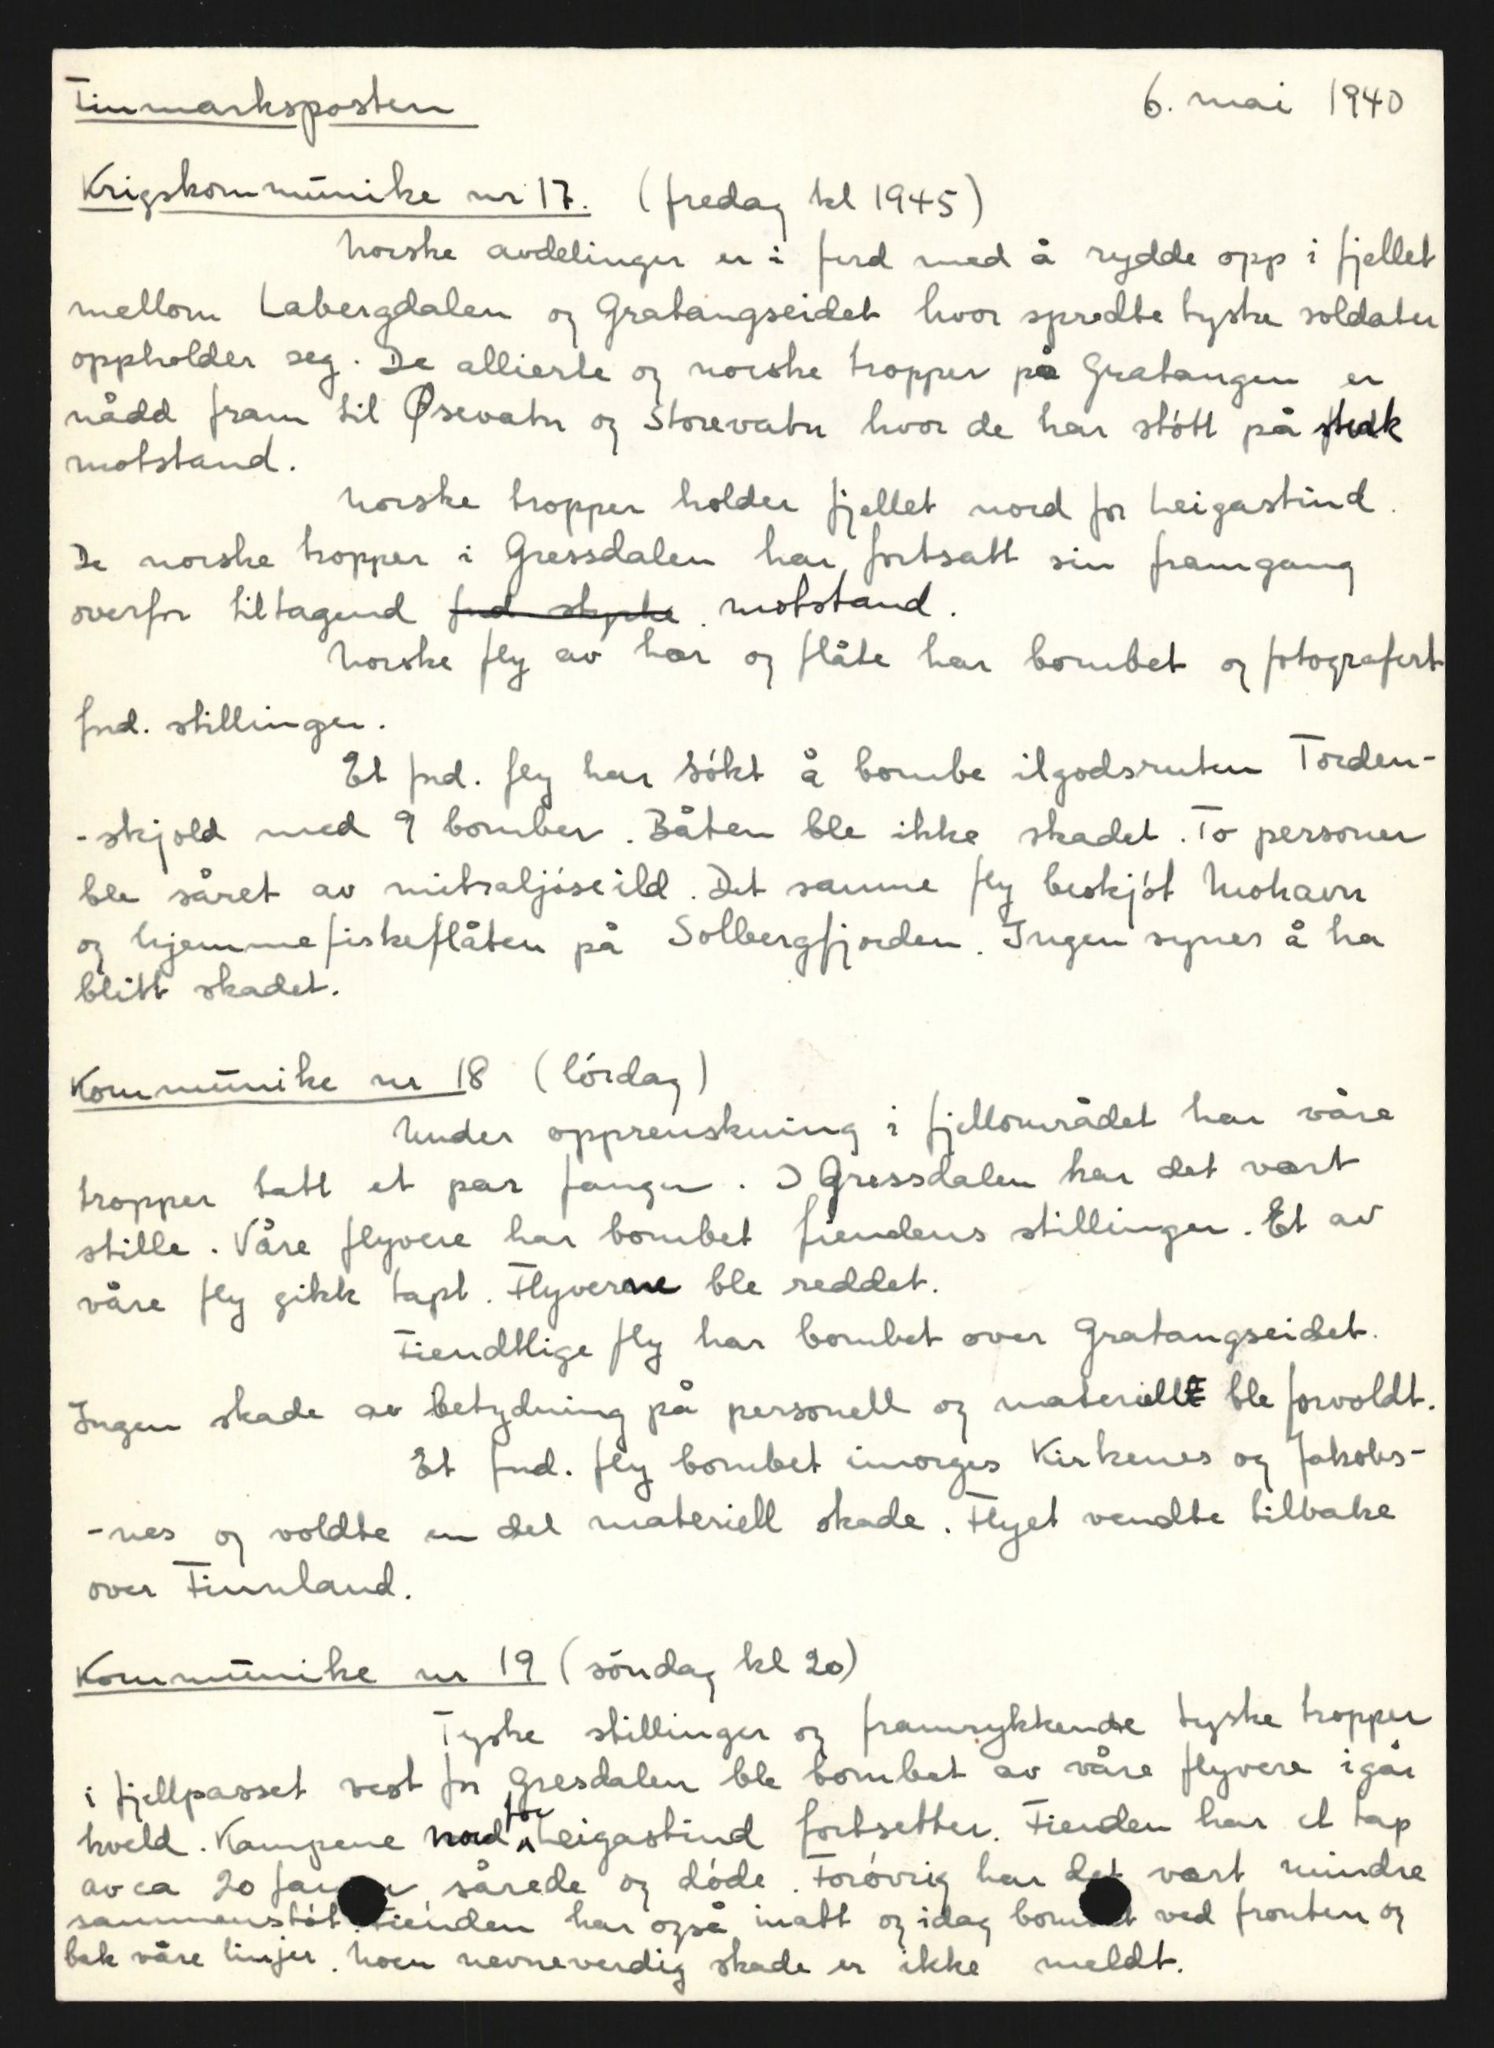 Finmarksposten 6. mai 1940
Krigskommunike nr 17. (fredag kl 1945)
Norske avdelinger er i ferd med å rydde opp i fjellet
mellom Labergdalen og Gratangseidet hvor spredte tyske soldater
oppholder seg. De allierte og norske tropper på Gratangen er
nådd fram til Øsevatn og Storevatn hvor de har støtt på sterk
motstand.
Norske tropper holder fjellet nord for Leigastind.
De norske tropper i Gressdalen har fortsatt sin framgang
overfor tiltagend fnd styrke motstand.
Norske fly av hær og flåte har bombet og fotografert
fnd. stillinger.
Et fnd. fly har søkt å bombe ilgodsruten Torden-
-skjold med 9 bomber. Båten ble ikke skadet. To personer
ble såret av mitraljøseild. Det samme fly beskjøt Mohavn
og hjemmefiskeflåten på Solbergfjorden. Ingen synes å ha
blitt skadet.
Kommunike nr 18 (lørdag)
Under opprenskning i fjellområdet har våre
tropper tatt et par fanger. I Gressdalen har det vært
stille. Våre flyvere har bombet fiendens stillinger. Et av
våre fly gikk tapt. Flyverne ble reddet.
Fiendtlige fly har bombet over Gratangseidet.
Ingen skade av betydning på personell og materiell ble forvoldt.
Et fnd. fly bombet imorges Kirkenes og Jakobs-
-nes og voldte en del materiell skade. Flyet vendte tilbake
over Finnland.
Kommunike nr 19 (søndag kl 20)
Tyske stillinger og framrykkende tyske tropper
i fjellpasset vest for Gresdalen ble bombet av våre flyvere igår
kveld. Kampene nord for Leigastind fortsetter. Fienden har et tap
av ca 20 fanger, sårede og døde. Forøvrig har det vært mindre
sammenstøt. Fienden har også inatt og idag bombet ved fronten og
bak våre linjer. Noen nevneverdig skade er ikke meldt.